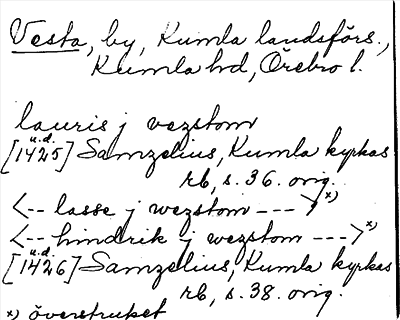 Vesta, by, Kumla landsförs.,
Kumla hd, Örebro l.
lauris j vezstom
u.d.
[1425] Samzelius, Kumla kyrkas
rb, s. 36. orig.
<-- lasse j wezstom --->x)
<-- hindrik j wezstom --->x)
u.d.
[1426] Samzelius, Kumla kyrkas
rb, s. 38. orig.
x) överstruket